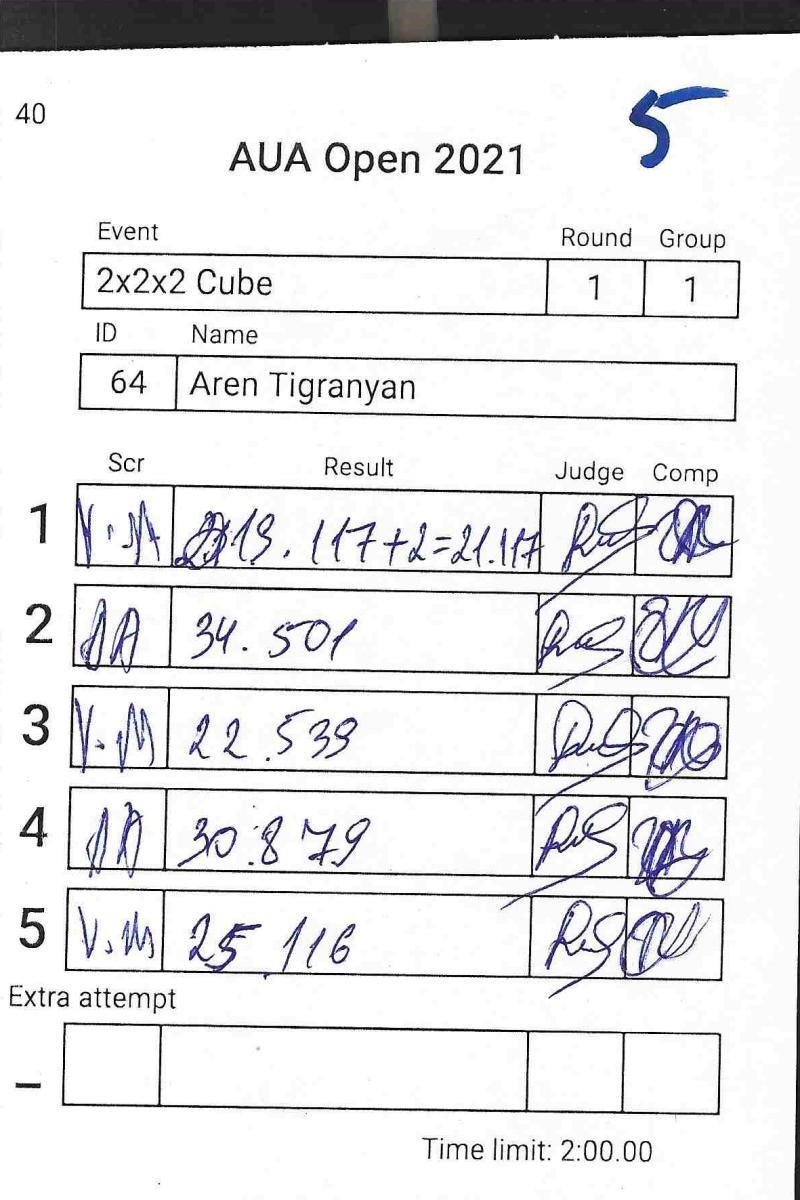 40
5
AUA Open 2021
Event Round Group
2x2x2 Cube 1 1
ID Name
64 Aren Tigranyan
Scr Result Judge Comp
1 V.M 19.117+2=21.117
2 AA 34.501
3 V.M 22.539
4 AA 30.879
5 V.M 25.116
Extra attempt
–
Time limit: 2:00.00